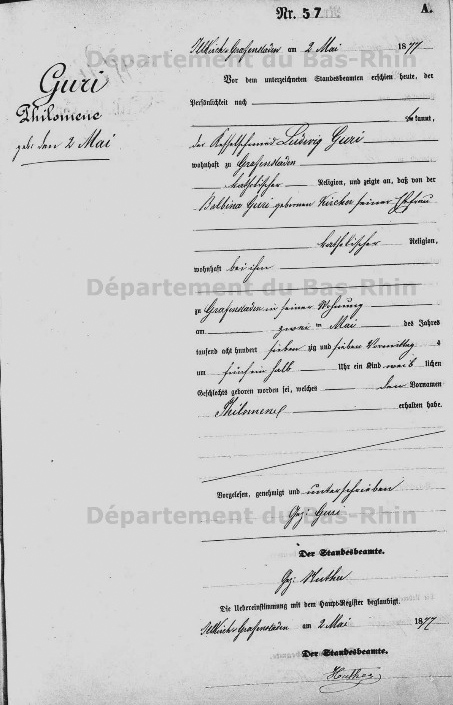 Nr. 57
A.
Illkirch-Grafenstaden am 2 Mai 1877
Vor dem unterzeichneten Standesbeamten erschien heute, der
Persönlichkeit nach
bekannt,
der Kesselschmied Ludwig Guri
wohnhaft zu Grafenstaden
katholischer Religion, und zeigte an, daß von der
Balbina Guri gebornen Kircher seiner Ehefrau
katholischer Religion,
wohnhaft bei ihm
zu Grafenstaden in seiner Wohnung
am zwei ten Mai des Jahres
tausend acht hundert sieben zig und sieben Vormittag s
um fünfein halb Uhr ein Kind weib lichen
Geschlechts geboren worden sei, welches den Vornamen
Philomene erhalten habe.
Vorgelesen, genehmigt und unterschrieben
Gez: Guri
Der Standesbeamte.
Gez:
Die Uebereinstimmung mit dem Haupt-Register beglaubigt.
Illkirch-Grafenstaden am 2 Mai 1877
Der Standesbeamte.
Guri
Philomene
geb: den 2 Mai
Département du Bas-Rhin
Département du Bas-Rhin
Département du Bas-Rhin